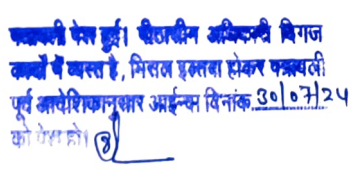 पत्रावली पेश हुई। पीठासीन अधिकारी विगज
कार्यो में व्यस्त है, मिसल इल्तवा होकर पत्रावली
पूर्व आदेशिकानुसार आईन्दा दिनांक 30/07/24
को पेश हो।